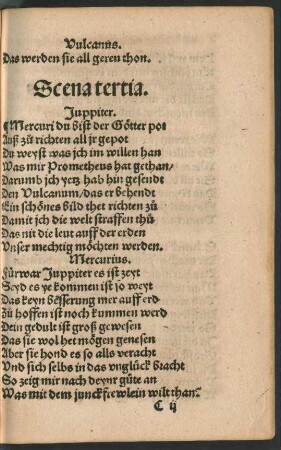 Vulcanus.
Das werden sie all geren thon.
Scena tertia.
Juppiter.
¶Mercuri du bist der Götter pot
Auß zů richten all jr gepot
Du weyst was jch im willen han
Was mir Prometheus hat gethan/
Darumb ich yetz hab hin gesendt
Den Vulcanum/das er behendt
Ein schönes bild thet richten zů
Damit ich die welt straffen thů
Das nit die leut auff der erden
Vnser mechtig möchten werden.
Mercurius.
Fürwar Juppiter es ist zeyt
Seyd es ye kommen ist so weyt
Das keyn besserung mer auff erd
Zů hoffen ist noch kummen werd
Dein gedult ist groß gewesen
Das sie wol het mögen genesen
Aber sie hond es so als veracht
Vnd sich selbs in das vnglück bracht
So zeig mir nach deynr güte an
Was mit dem junckfrewlein wilt than?
C ij